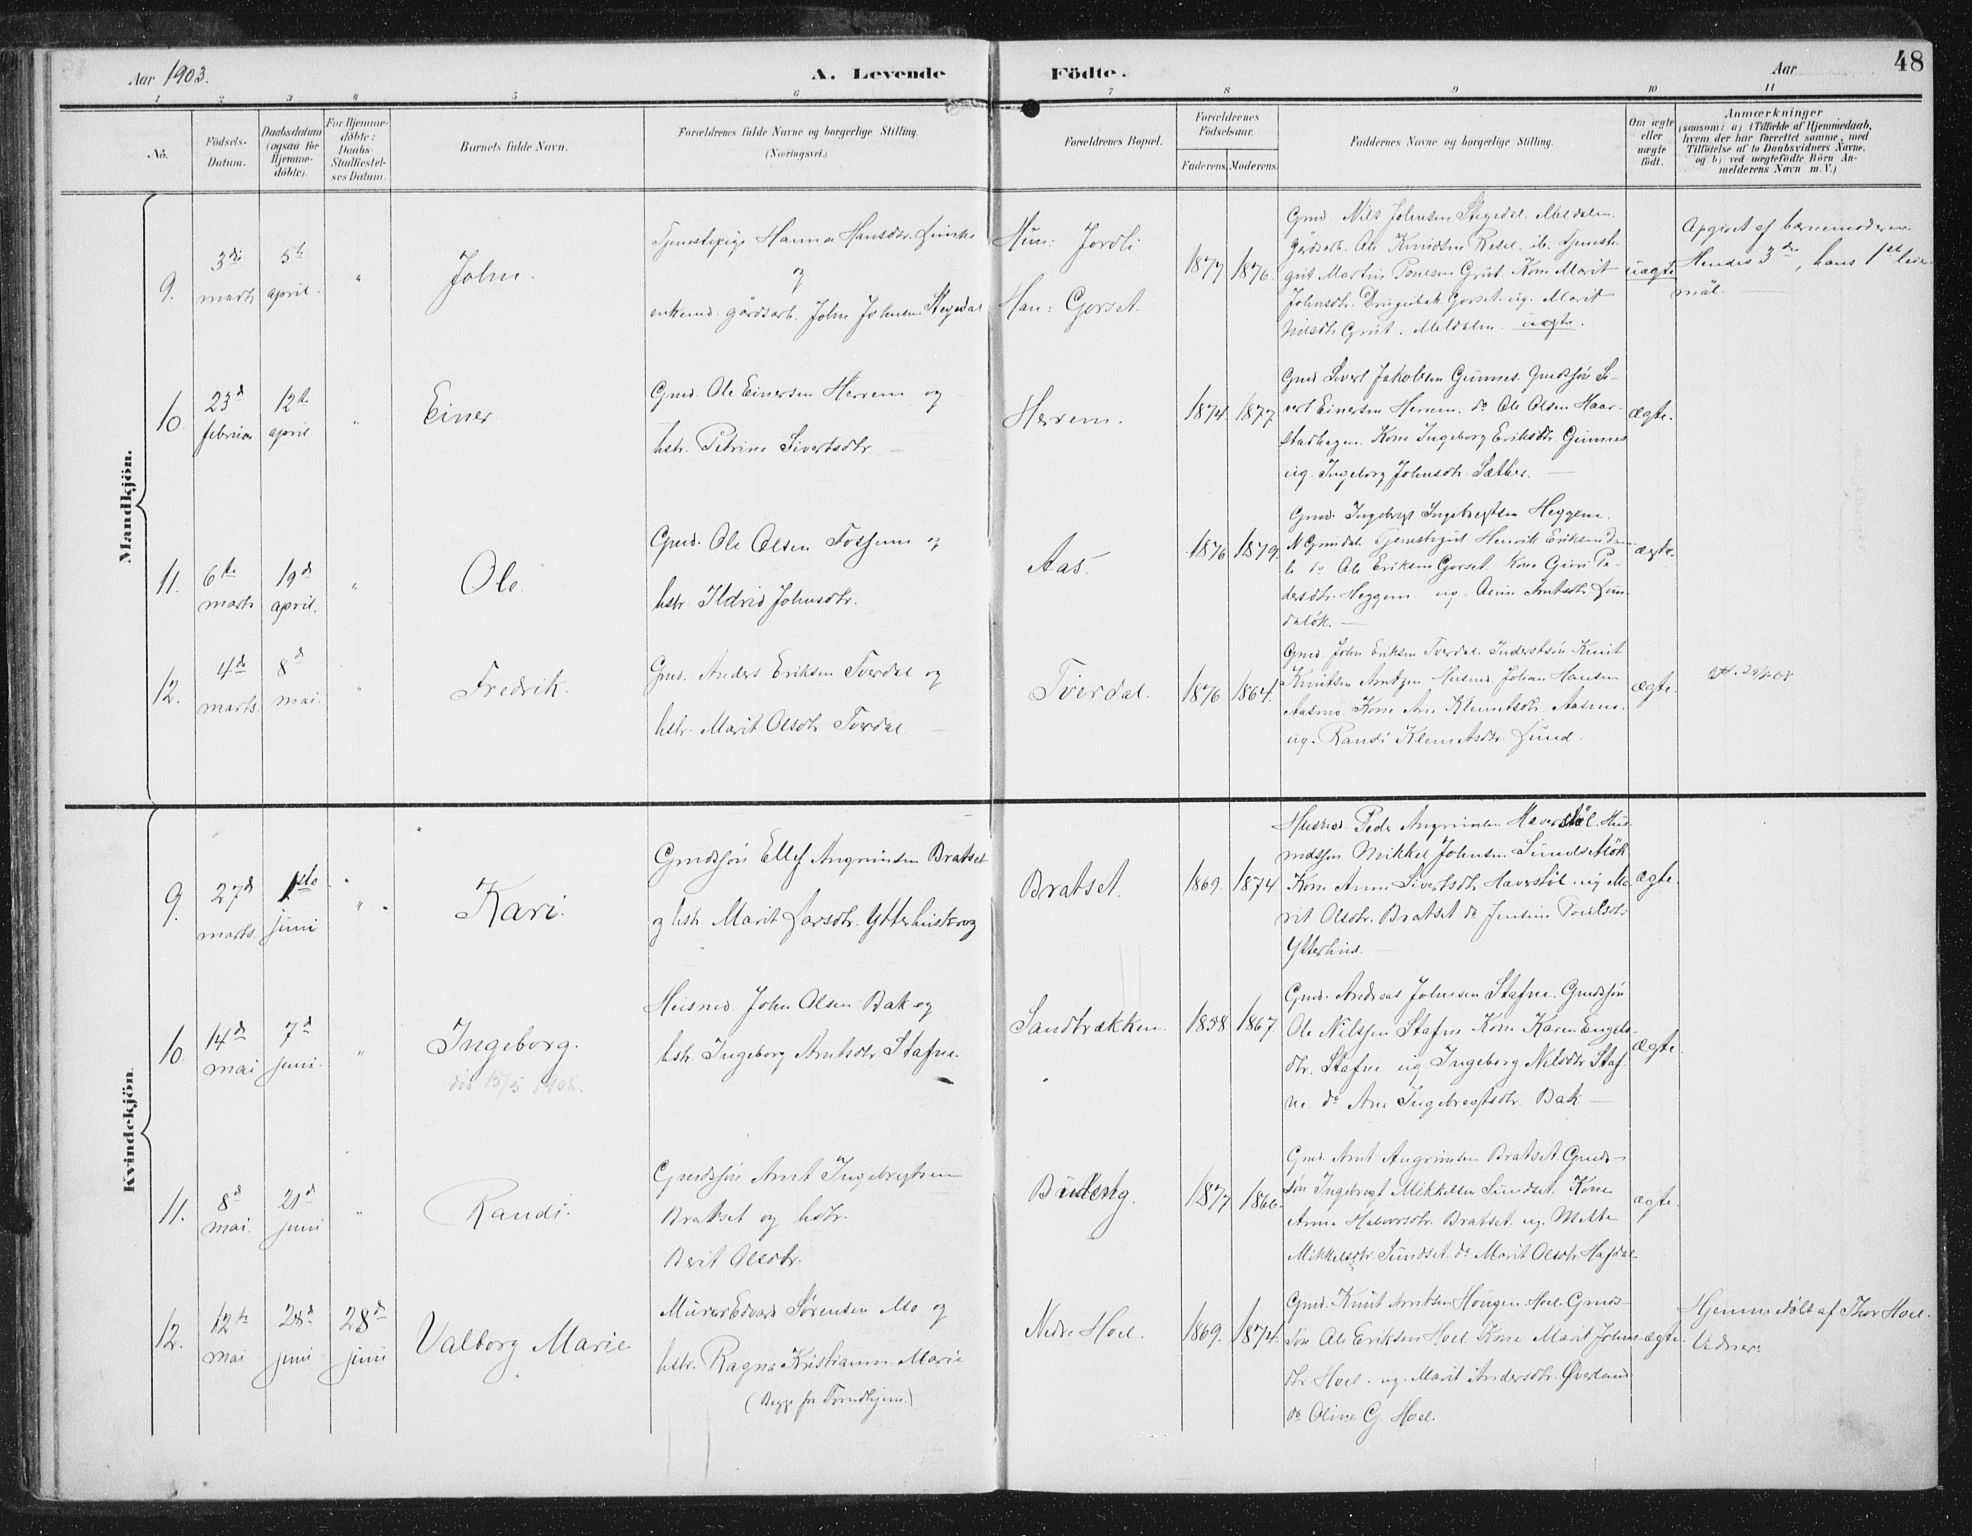 Aar 1903.
A. Levende
Födte.
Aar
48
1 2 3 4 5 6 7 8 9 10 11
No.
Födsels-
Datum.
Daabsdatum
(ogsaa for
Hjemme-
døbte).
For Hjemme-
döbte:
Daabs-
Stadfæstel-
ses Datum.
Barnets fulde Navn.
Forældrenes fulde Navne og borgerlige Stilling.
(Næringsvei.)
Forældrenes Bopæl.
Forældrenes
Födselsaar.
Faderens.
Moderens.
Faddernes Navne og borgerlige Stilling.
Om ægte
eller
uægte
født.
Anmærkninger
(saasom: a) i Tilfælde af Hjemmedaab,
hvem der har forrettet samme, med
Tilföielse af to Daabsvidners Navne.
og b) ved uægtefödte Börn An-
melderens Navn m. V.)
Mandkjön.
9.
3di
marts
5te
april.
"
John.
Tjenestepige Hanna Hansdtr.
og
enkemd. gårdsarb. John Johnsen Stegedal
Hun: Jordli
Han: Gorset.
1877
1876.
Gmd. Nils Johnsen Stegedal. Meldalen.
gårdsarb. Ole Knudsen Resel. ib. Tjeneste-
gut Martin Grut. Kone Marit
Johnsdtr. Drugubak Gorset. ug. Marit
Nilsdtr. Grut. Meldalen. uægte.
uægte
Opgivet af barnemoderen
Hendes 3de, hans 1ste leier-
mål.
10.
23d
februar
12te
april
"
Einer.
Gmd. Ole Einersen Herrem og
hstr. Petrine Sivertsdtr.
Herrem.
1874.
1877.
Gmd Sivert Jakobsen Gunnes. Gmdssön Si-
vert Einersen Herrem. do Ole Olsen Haar-
stadhagen. Kone Ingeborg Eriksdtr. Gunnes
ug. Ingeborg Johnsdtr. Sæther.
ægte.
11.
6te
marts
19d
april.
"
Ole.
Gmd. Ole Olsen Fossum og
hstr. Ildrid Johnsdtr.
Aas.
1876
1879.
Gmd. Ingebrigt Ingebrigtsen Heggem.
Tjenestegut Henrik Eriksen
do Ole Eriksen Gorset. Kone Guri Pe-
dersdtr. Heggem. ug. Arntsdtr.
ægte.
12.
4de
marts.
8d
mai.
"
Fredrik.
Gmd. Anders Eriksen Tverdal og
hstr. Marit Olsdtr Tverdal
Tverdal.
1876
1864.
Gmd. John Eriksen Tverdal. Inderstsön Knut
Knutsen Arntzen. Husmd. Johan Hansen
Aasmo. Kone Ane Klemetsdtr. Aasmo.
ug. Randi Klemetsdtr. Lund.
ægte.
Kvindekjön.
9.
27d
marts.
1ste
juni
"
Kari.
Gmdssön Ellef Angrimsen Bratset
og hstr. Marit Larsdtr.
Bratset.
1869.
1874
Husmd. Peder Angrimsen Haverstöl. Hus-
mdssön Mikkel Johnsen Sundsetlök
Kone Anne Sivertsdtr Haverstöl. ug Ma-
rit Olsdtr. Bratset do Poulsdtr
Ytterhus.
ægte.
10.
14d
mai
7d
juni.
"
Ingeborg.
död 15/5 1908.
Husmd John Olsen Bak og
hstr. Ingeborg Arntsdtr Stafne.
Sandbrækken.
1858
1867.
Gmd. Andreas Johnsen Stafne. Gmdssön
Ole Nilssen Stafne Kone Karen Engels-
dtr. Stafne ug Ingeborg Nilsdtr Staf-
ne. do Ane Ingebrigtsdtr. Bak
ægte.
11.
8d
mai.
21d
juni
"
Randi.
Gmdssön Arnt Ingebrigtsen
Bratset og hstr.
Berit Olsdtr.
Budeng.
1877
1866.
Gmd. Arnt Angrimsen Bratset. Gmds-
sön Ingebrigt Mikkelsen Sundset. Kone
Anne Halvorsdtr. Bratset. ug. Mette
Mikkelsdtr. Sundset. do Marit Olsdtr. Hafdal
ægte.
12.
12te
mai
28d
juni
28d
juni
Valborg Marie
Murer Edvard Sørensen Mo og
hstr. Ragna Kristianna Marie
(Begge fra Trondhjem.)
Nedre Hoel.
1869.
1874.
Gmd. Knut Arntsen Hougen-Hoel Gmds-
sön Ole Eriksen Hoel Kone Marit Johns-
dtr Hoel. ug. Marit Andersdtr. Øverland
do Oline G. Hoel.
ægte.
Hjemmedöbt af Thor Hoel.
Vidner: